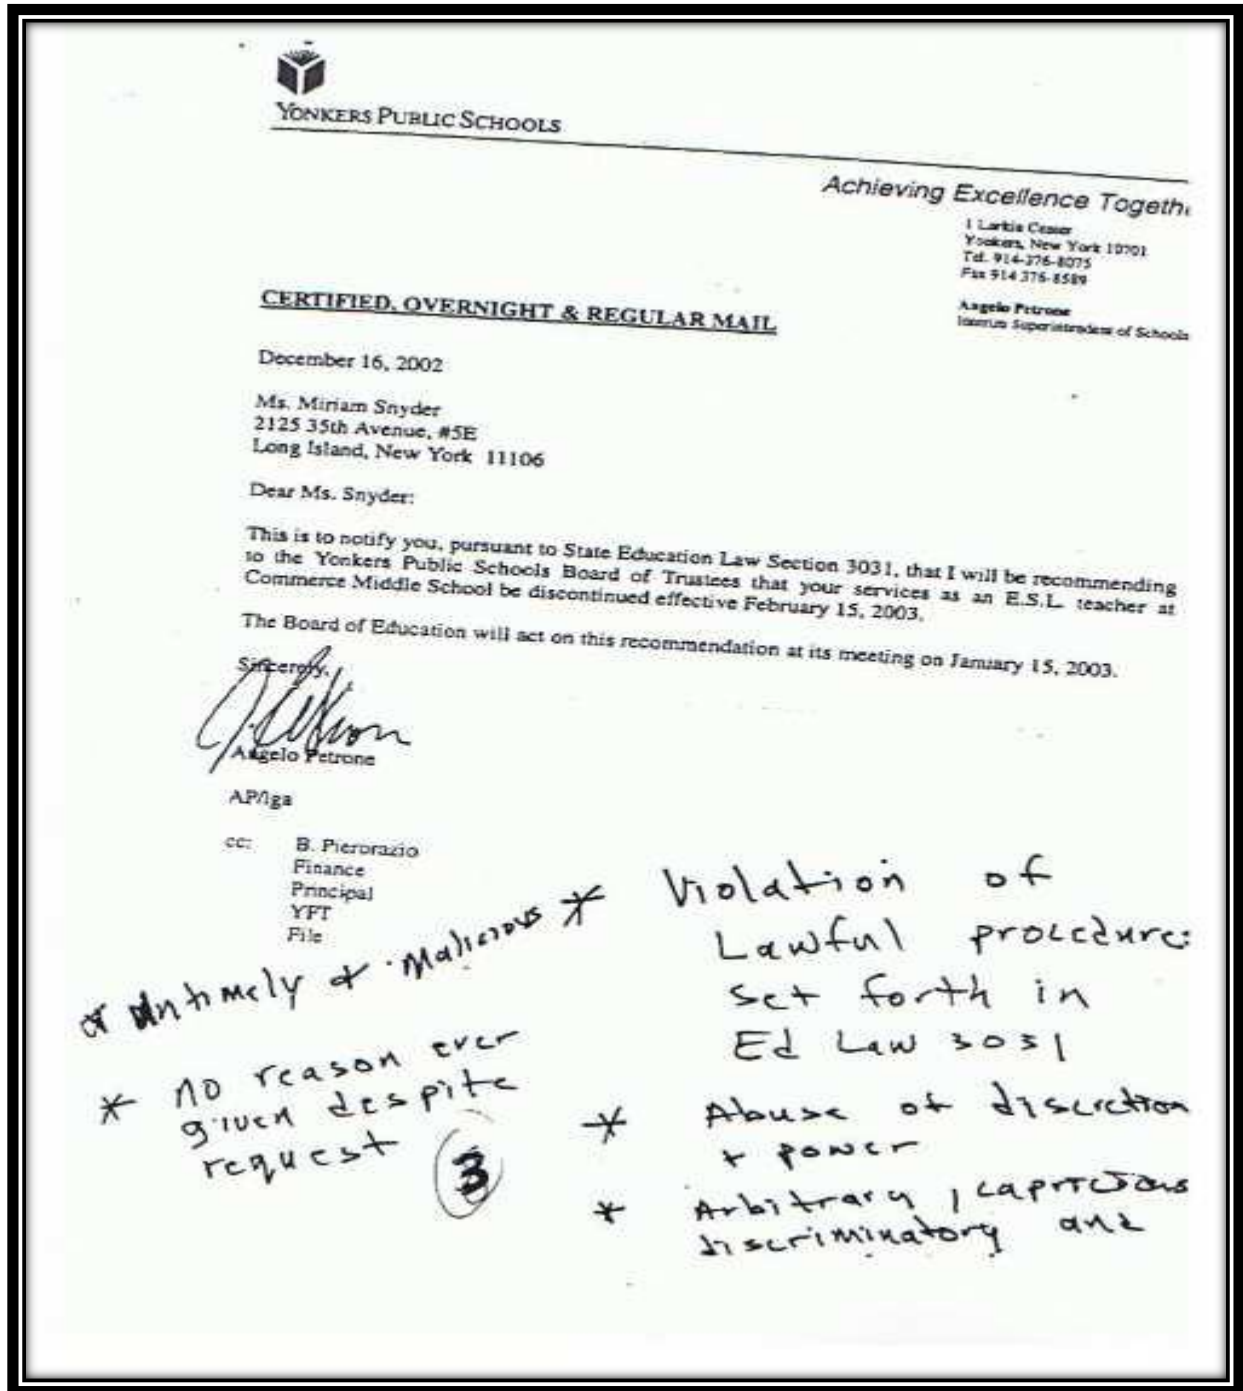 YONKERS PUBLIC SCHOOLS
Achieving Excellence Togeth
1 Larkin Center
Yonkers, New York 10701
Tel. 914-376-8075
Fax 914 376-8589
Angelo Petrone
Interim Superintendent of Schools
CERTIFIED, OVERNIGHT & REGULAR MAIL
December 16, 2002
Ms. Miriam Snyder
2125 35th Avenue, #5E
Long Island, New York 11106
Dear Ms. Snyder:
This is to notify you, pursuant to State Education Law Section 3031, that I will be recommending
to the Yonkers Public Schools Board of Trustees that your services as an E.S.L. teacher at
Commerce Middle School be discontinued effective February 15, 2003.
The Board of Education will act on this recommendation at its meeting on January 15, 2003.
Sincerely,
Angelo Petrone
AP/lga
cc: B. Pierorazio
Finance
Principal
YFT
File
* Untimely & Malicious
* no reason ever
given despite
request
3
* Violation of
Lawful procedure:
set forth in
Ed Law 3031
* Abuse of discretion
+ power
* Arbitrary, capricious
discriminatory and